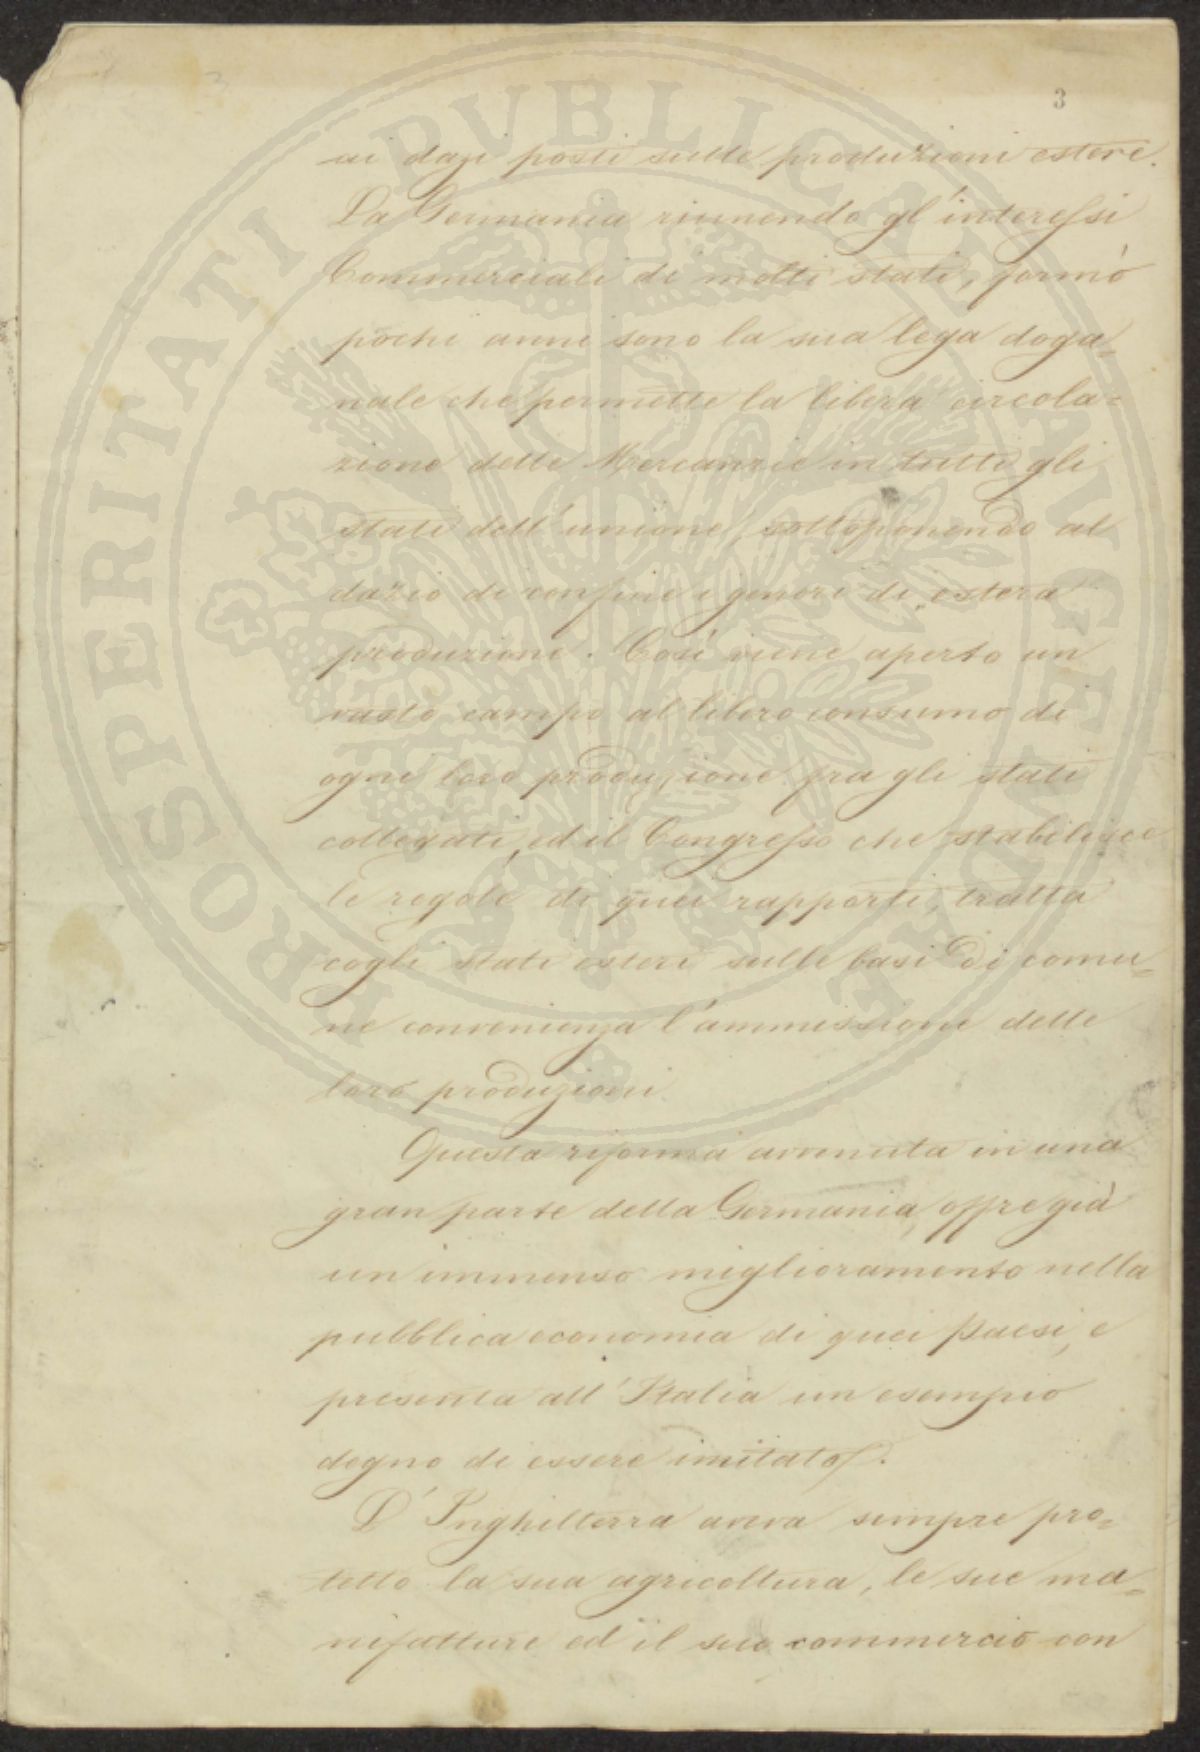 3
ai dazi posti sulle produzioni estere.
La Germania riunendo gl'interessi
Commerciali di molti stati, formò
pochi anni sono la sua lega doga=
nale che permette la libera circola=
zione delle Mercanzie in tutti gli
stati dell'unione, sottoponendo al
dazio di confine i generi di estera
produzione. Così viene aperto un
vasto campo al libero consumo di
ogni loro produzione fra gli stati
collegati, ed il Congresso che stabilisce
le regole di quei rapporti, tratta
cogli stati esteri sulle basi di comu=
ne convenienza l'ammissione delle
loro produzioni.
Questa riforma avvenuta in una
gran parte della Germania, offre già
un immenso miglioramento nella
pubblica economia di quei Paesi, e
presenta all'Italia un esempio
degno di essere imitato.
L'Inghilterra aveva sempre pro=
tetto la sua agricoltura, le sue ma=
nifatture ed il suo commercio con
PROSPERITATI PUBLICAE AUGENDAE